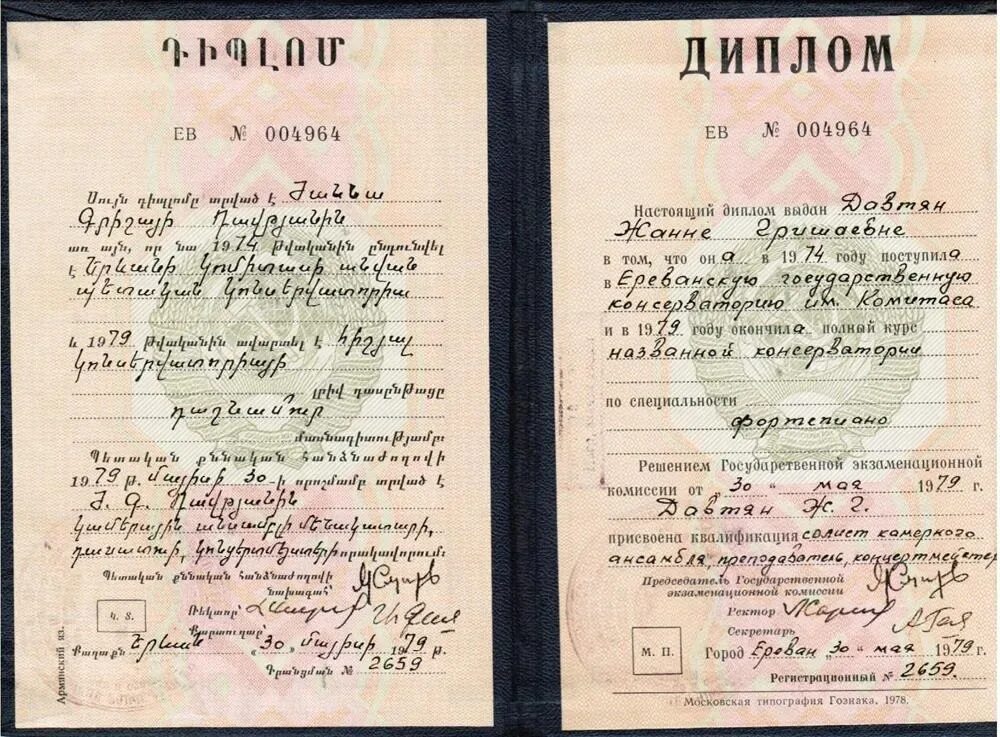 ԴԻՊԼՈՄ
ЕВ № 004964
Սույն դիպլոմը տրված է Ժաննա
Գրիշայի Դավթյանին
առ այն, որ նա 1974 թվականին ընդունվել
է Երևանի Կոմիտասի անվան
պետական կոնսերվատորիա
և 1979 թվականին ավարտել է հիշյալ
կոնսերվատորիայի
լրիվ դասընթացը
դաշնամուր
մասնագիտությամբ:
Պետական քննական հանձնաժողովի
1979 թ. մայիսի 30-ի որոշմամբ տրված է
Ժ. Գ. Դավթյանին
կամերային անսամբլի մենակատարի,
դասատուի, կոնցերտմեյստերի որակավորում:
Պետական քննական հանձնաժողովի
նախագահ՝
Ռեկտոր՝
Քարտուղար՝
Կ. Տ.
Քաղաքն Երևան «30» մայիսի 1979 թ.
Գրանցման № 2659
Армянский яз.
ДИПЛОМ
ЕВ № 004964
Настоящий диплом выдан Давтян
Жанне Гришаевне
в том, что она в 1974 году поступила
в Ереванскую государственную
консерваторию им. Комитаса
и в 1979 году окончила полный курс
названной консерватории
по специальности
фортепиано
Решением Государственной экзаменационной
комиссии от „30“ мая 1979 г.
Давтян Ж. Г.
присвоена квалификация солист камерного
ансамбля, преподаватель, концертмейстер
Председатель Государственной
экзаменационной комиссии
Ректор
Секретарь
М. П.
Город Ереван „30“ мая 1979 г.
Регистрационный № 2659.
Московская типография Гознака. 1978.